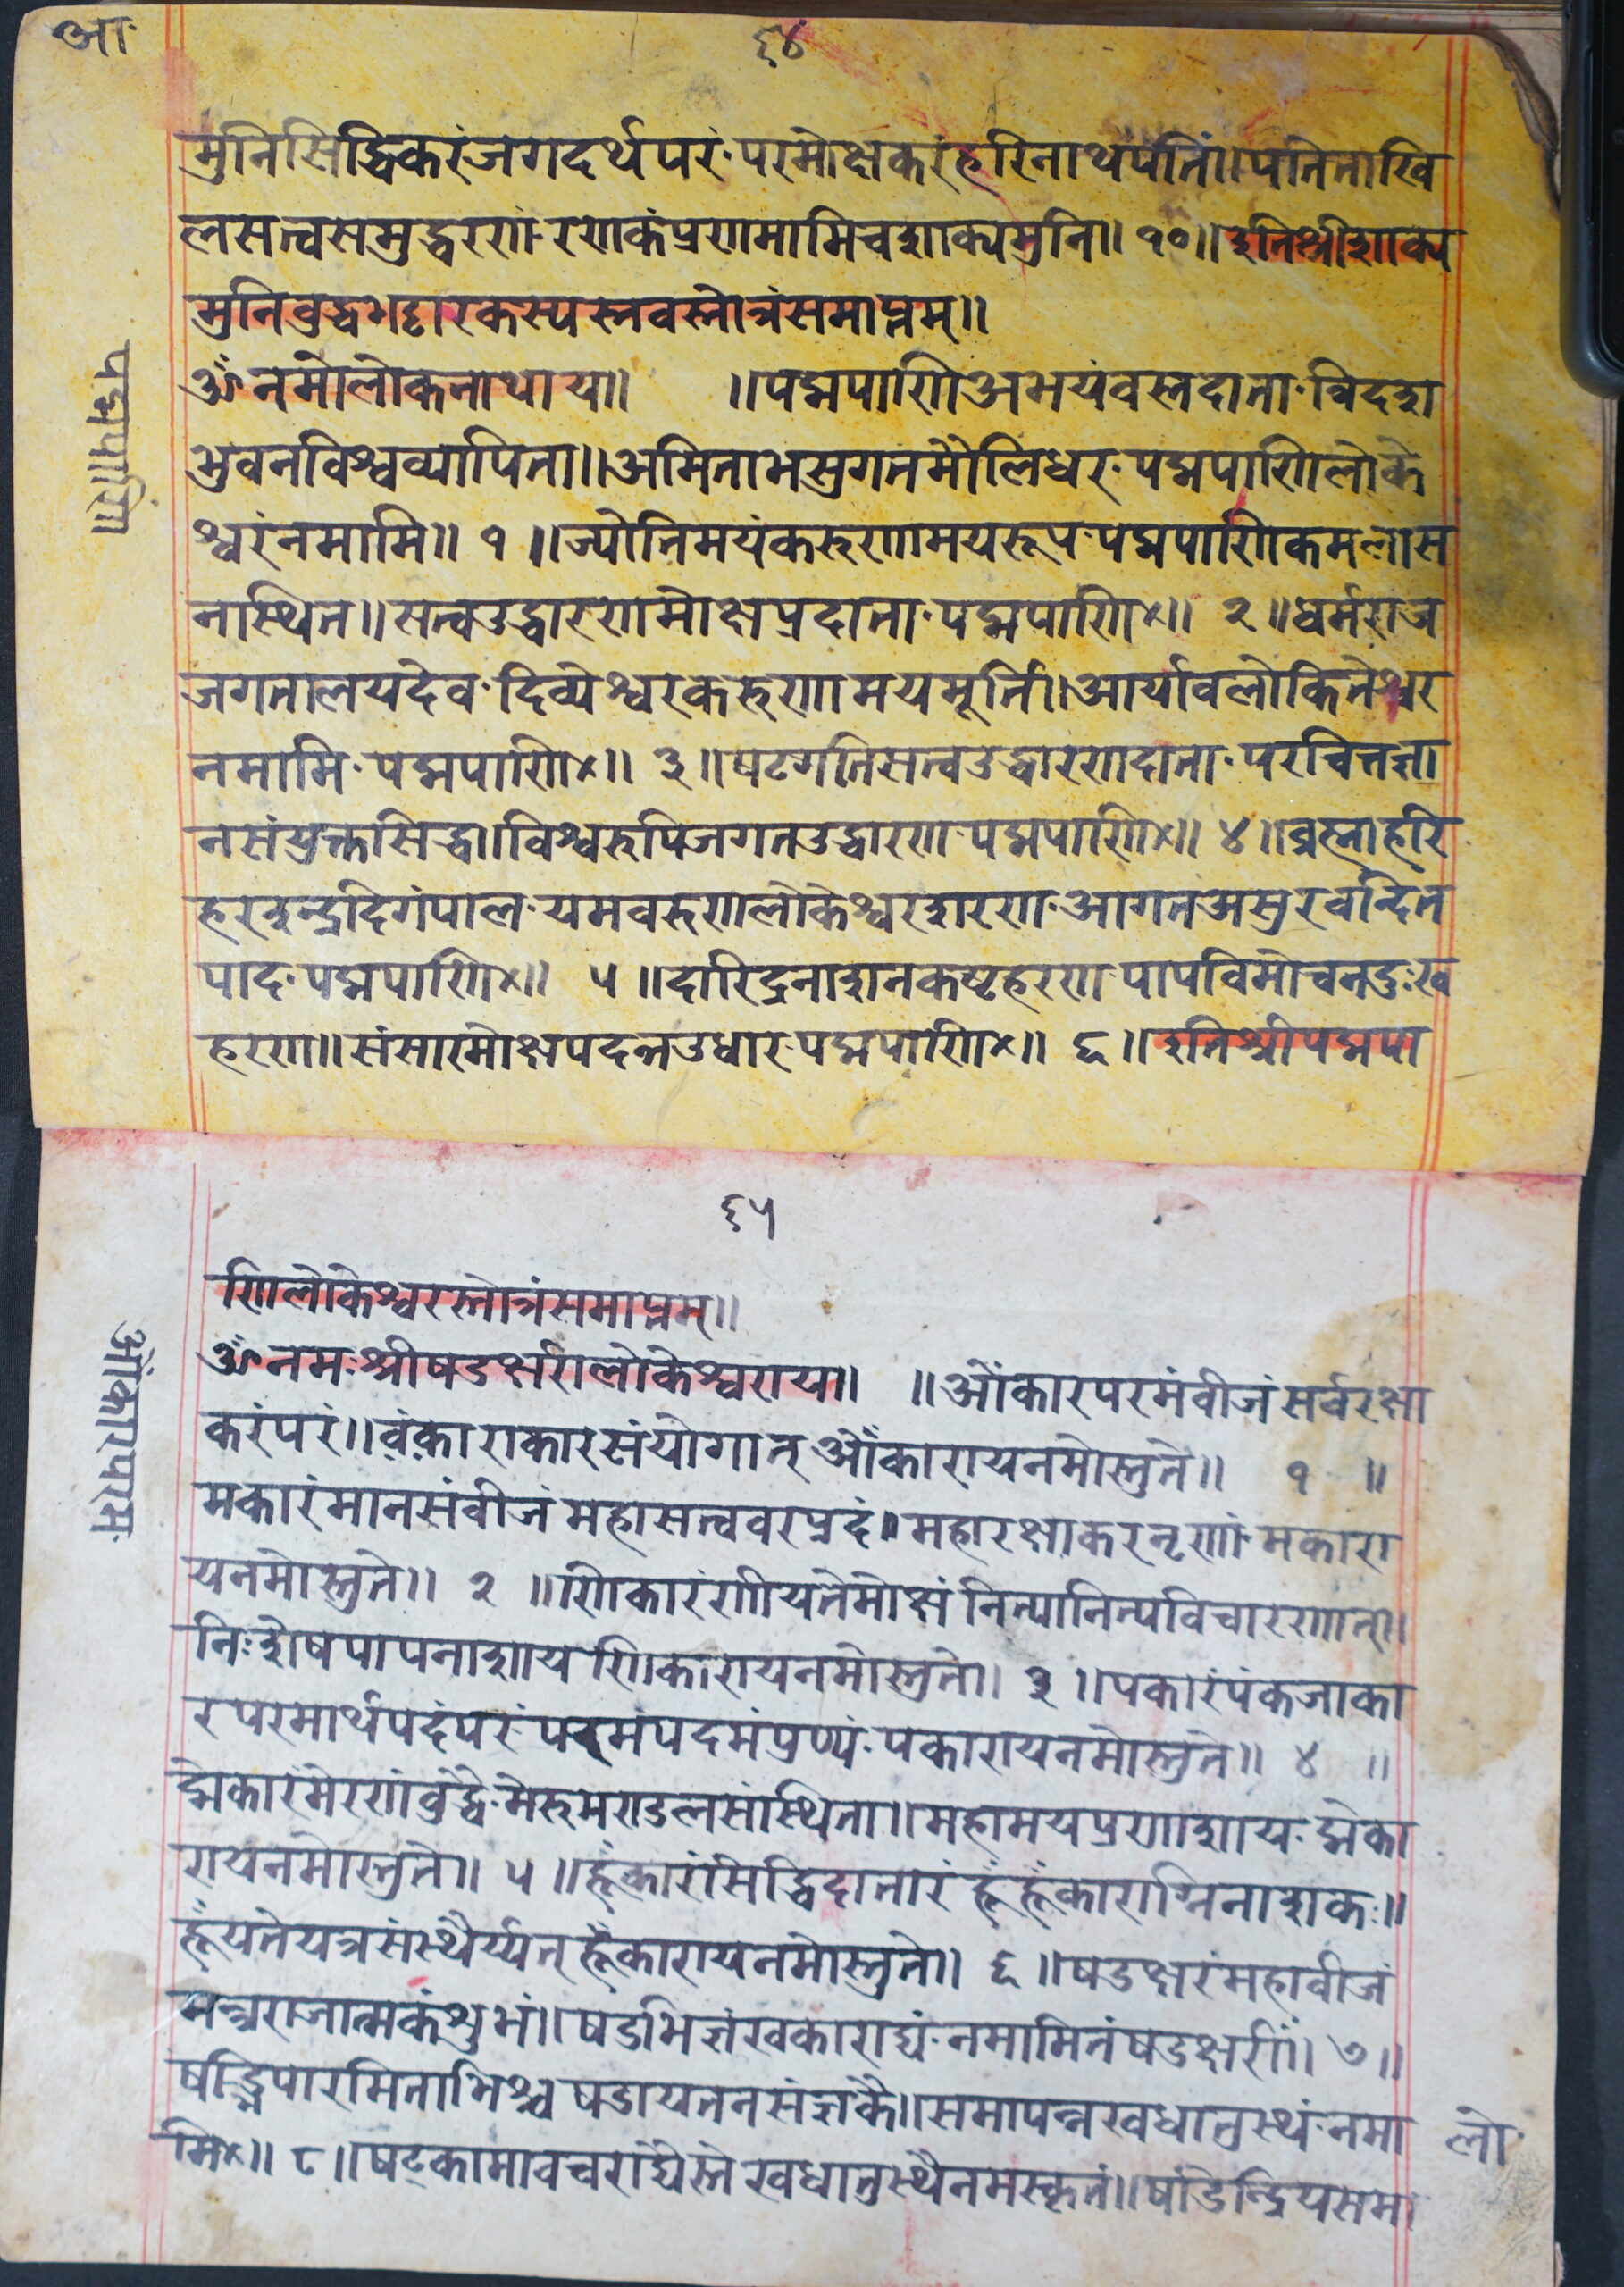 आ
६४
मुनिसिद्धिकरंजगदर्थपरं·परमोक्षकरंहरिनाथपतिं॥पतिताखि
लसत्वसमुद्धरणं·रणकंप्रणमामिचशाक्यमुनि॥१०॥इतिश्रीशाक्य
मुनिबुद्धभट्टारकस्यस्तवस्तोत्रंसमाप्तम्॥
पद्मपाणि
ॐनमोलोकनाथाय॥ ॥पद्मपाणिअभयंवस्तदाता·त्रिदश
भुवनविश्वव्यापिता॥अमिताभसुगतमौलिधर·पद्मपाणिलोके
श्वरंनमामि॥ १ ॥ज्योतिमयंकरुणामयरूप·पद्मपाणिकमलास
नास्थित॥सत्वउद्धारणमोक्षप्रदाता·पद्मपाणि×॥ २ ॥धर्मराज
जगतालयदेव·दिव्येश्वरकरुणामयमूर्ति॥आर्यावलोकितेश्वर
नमामि·पद्मपाणि×॥ ३ ॥षटगतिसत्वउद्धारणदाता·परचित्तज्ञा
नसंप्रक्तासिद्ध॥विश्वरुपिजगतउद्धारण·पद्मपाणि×॥ ४ ॥ब्रह्माहरि
हरइन्द्रदिगंपाल·यमवरुणलोकेश्वरशरण·आगतअसुरवन्दित
पाद·पद्मपाणि×॥ ५ ॥दारिद्रनाशनकष्टहरण·पापविमोचनदुःख
हरण॥संसारमोक्षपदन्तउधार·पद्मपाणि×॥ ६ ॥इतिश्रीपद्मपा
६५
णिलोकेश्वरस्तोत्रंसमाप्तम्॥
ओंकारपरम
ॐनमःश्रीषडक्षरीलोकेश्वराय॥ ॥ओंकारपरमंवीजंसर्वरक्षा
करंपरं॥वंकाराकारसंयोगात्ओंकारायनमोस्तुते॥ १ ॥
मकारंमानसंवीजंमहासत्ववरप्रदं॥महारक्षाकरनृणां·मकारा
यनमोस्तुते॥ २ ॥णिकारंणीयतेमोक्षंनित्यानित्यविचारणात्।
निःशेषपापनाशायणिकारायनमोस्तुते॥ ३ ॥पकारंपंकजाका
रपरमार्थपदंपरं·परमंपदमंप्रण्यं·पकारायनमोस्तुते॥ ४ ॥
द्मेकारंमेरणंबुद्धै·मेरुमण्डलसंस्थिता॥महामयप्रणाशाय·द्मेका
रायनमोस्तुते॥ ५ ॥हूँकारंसिद्धिदातारंहूँहूँकाराग्निनाशकः॥
हूँयतेयत्रसंस्थैर्य्यत्हूँकारायनमोस्तुते॥ ६ ॥षडक्षरंमहावीजं
मन्त्रराजात्मकंशुभं॥षडभिज्ञंखकाराद्यं·नमामितंषडक्षरीं॥ ७ ॥
षद्भिपारमिताभिश्चषडायतनसंज्ञकै॥समापन्नखधातुस्थं·नमा
मि×॥ ८ ॥षट्कामावचराद्यैस्तेखधातुस्थैनमस्कृतं॥षडेन्द्रियसमा
लो